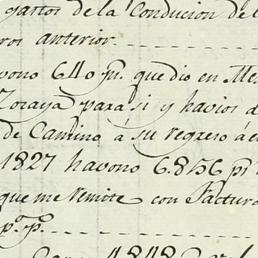 gastos de la Conducion de
ros anterior.
vono 640 ps. que dio en Me
Zoraya para si y havios d
de Camino á su regreso á
1827 havono 6.856 ps
que me remite con Factura
ps. ps.
4848